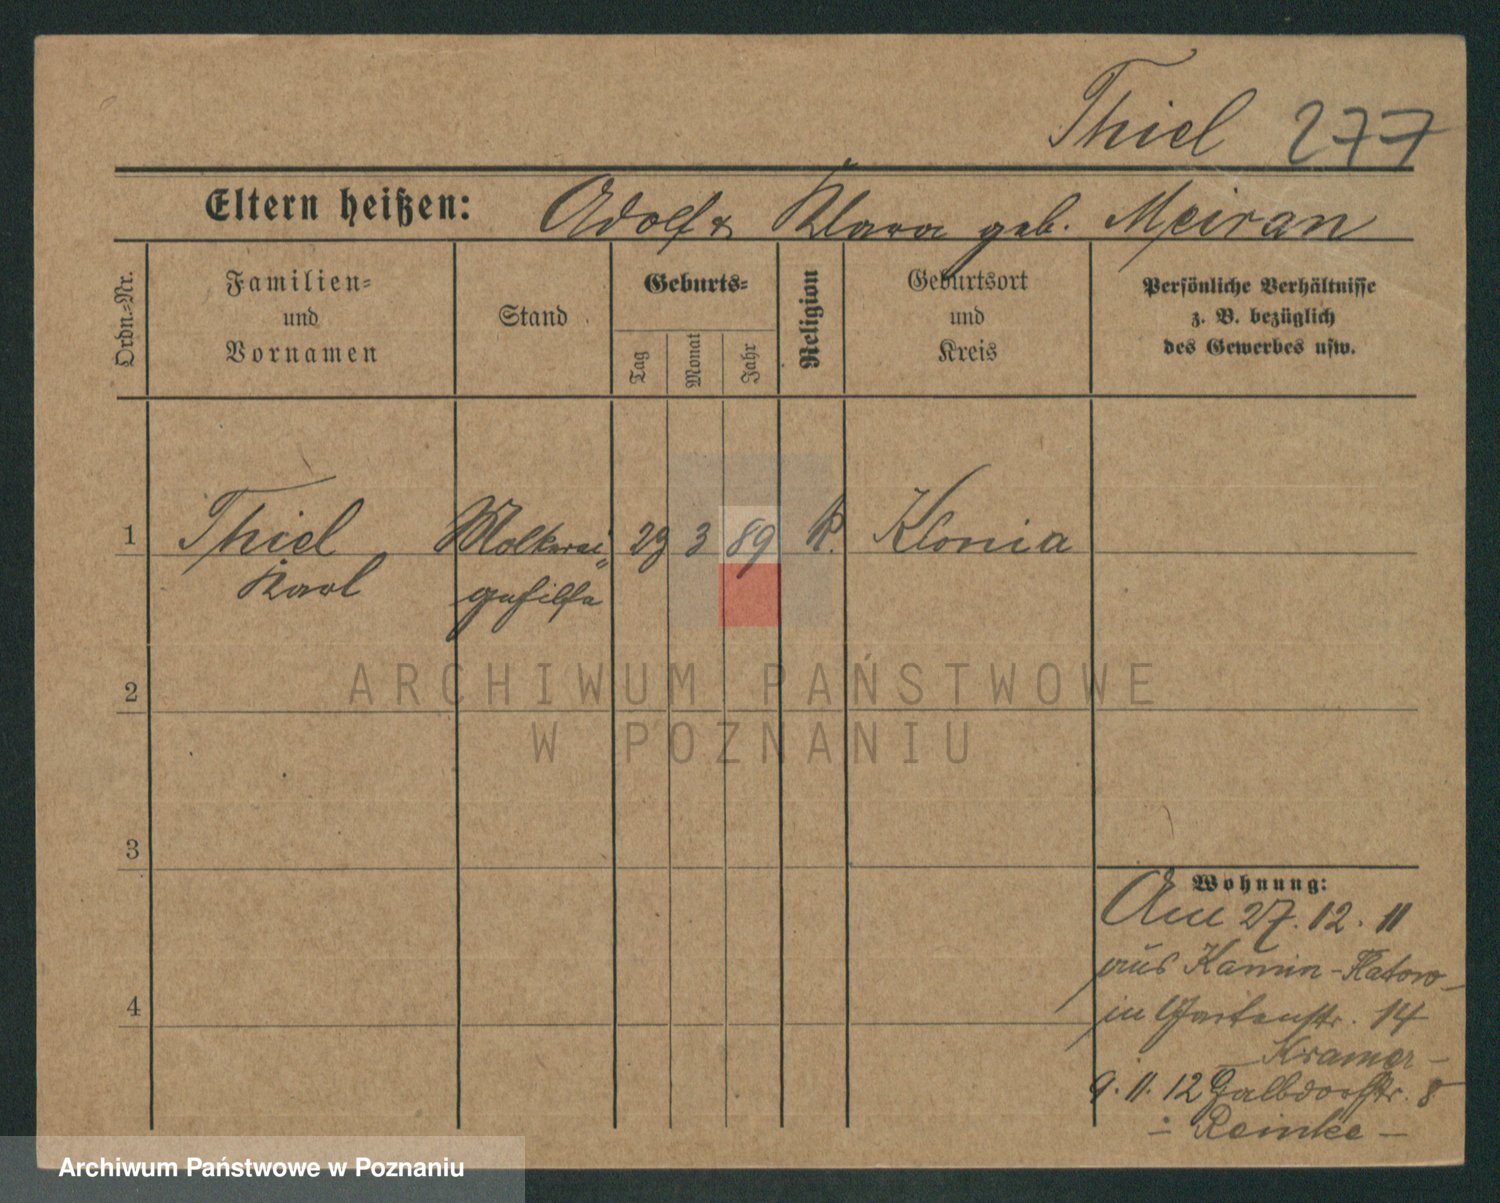 Thiel 277
Eltern heißen: Adolf & Klara geb. Meiran
Ordn.-Nr.
Familien-
und
Vornamen
Stand
Geburts-
Tag
Monat
Jahr
Religion
Geburtsort
und
Kreis
Persönliche Verhältnisse
z. B. bezüglich
des Gewerbes usw.
1 Thiel Molkerei 23 3 89 K. Klonia
Karl gehilfe
2
3
4
Wohnung:
Am 27. 12. 11
aus Kamin-Flatow
in Gartenstr. 14
Kramer -
9. 11. 12 Galbdorfstr. 8
- Reinke -
ARCHIWUM PAŃSTWOWE
W POZNANIU
Archiwum Państwowe w Poznaniu